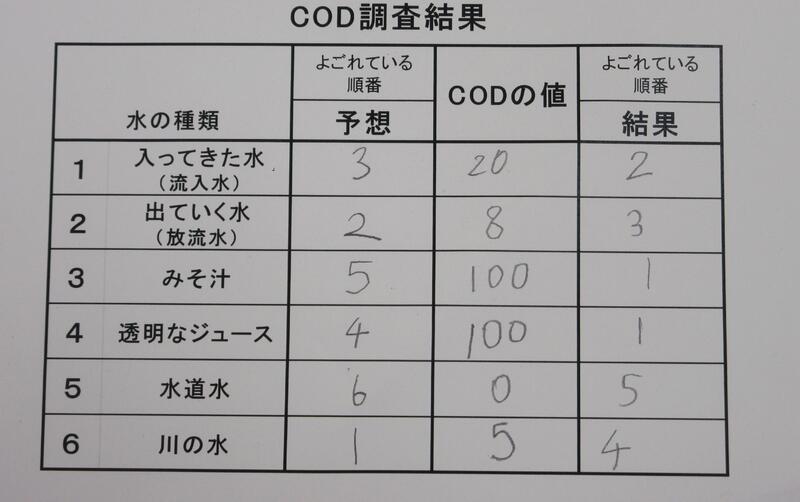 COD調査結果
水の種類 よごれている順番 予想 CODの値 よごれている順番 結果
1 入ってきた水(流入水) 3 20 2
2 出ていく水(放流水) 2 8 3
3 みそ汁 5 100 1
4 透明なジュース 4 100 1
5 水道水 6 0 5
6 川の水 1 5 4